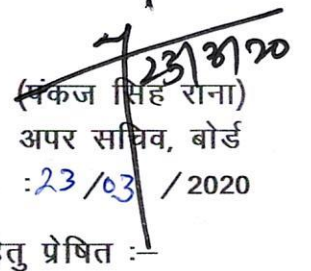 23/3/20
(पंकज सिंह राना)
अपर सचिव, बोर्ड
:23 /03 / 2020
हेतु प्रेषित :–